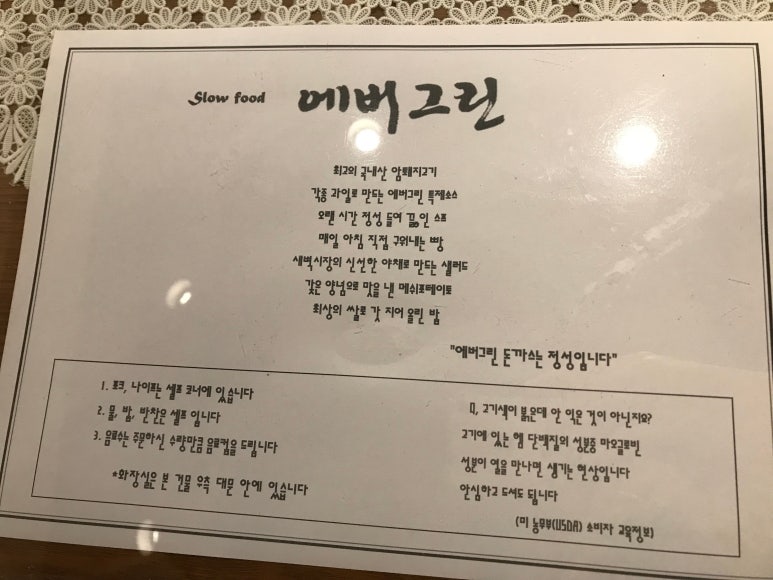 Slow food 에버그린
최고의 국내산 암퇘지고기
각종 과일로 만드는 에버그린 특제소스
오랜 시간 정성 들여 끓인 스프
매일 아침 직접 구워내는 빵
새벽시장의 신선한 야채로 만드는 샐러드
갖은 양념으로 맛을 낸 메쉬포테이토
최상의 쌀로 갓 지어 올린 밥
"에버그린 돈까스는 정성입니다"
1. 포크, 나이프는 셀프 코너에 있습니다
2. 물, 밥, 반찬은 셀프 입니다
3. 음료수는 주문하신 수량만큼 음료컵을 드립니다
*화장실은 본 건물 우측 대문 안에 있습니다
Q, 고기색이 붉은데 안 익은 것이 아닌지요?
고기에 있는 헴 단백질의 성분중 마오글로빈
성분이 열을 만나면 생기는 현상입니다
안심하고 드셔도 됩니다
(미 농무부(USDA) 소비자 교육정보)